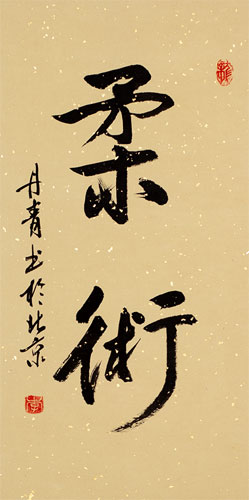 柔術
丹青书於北京